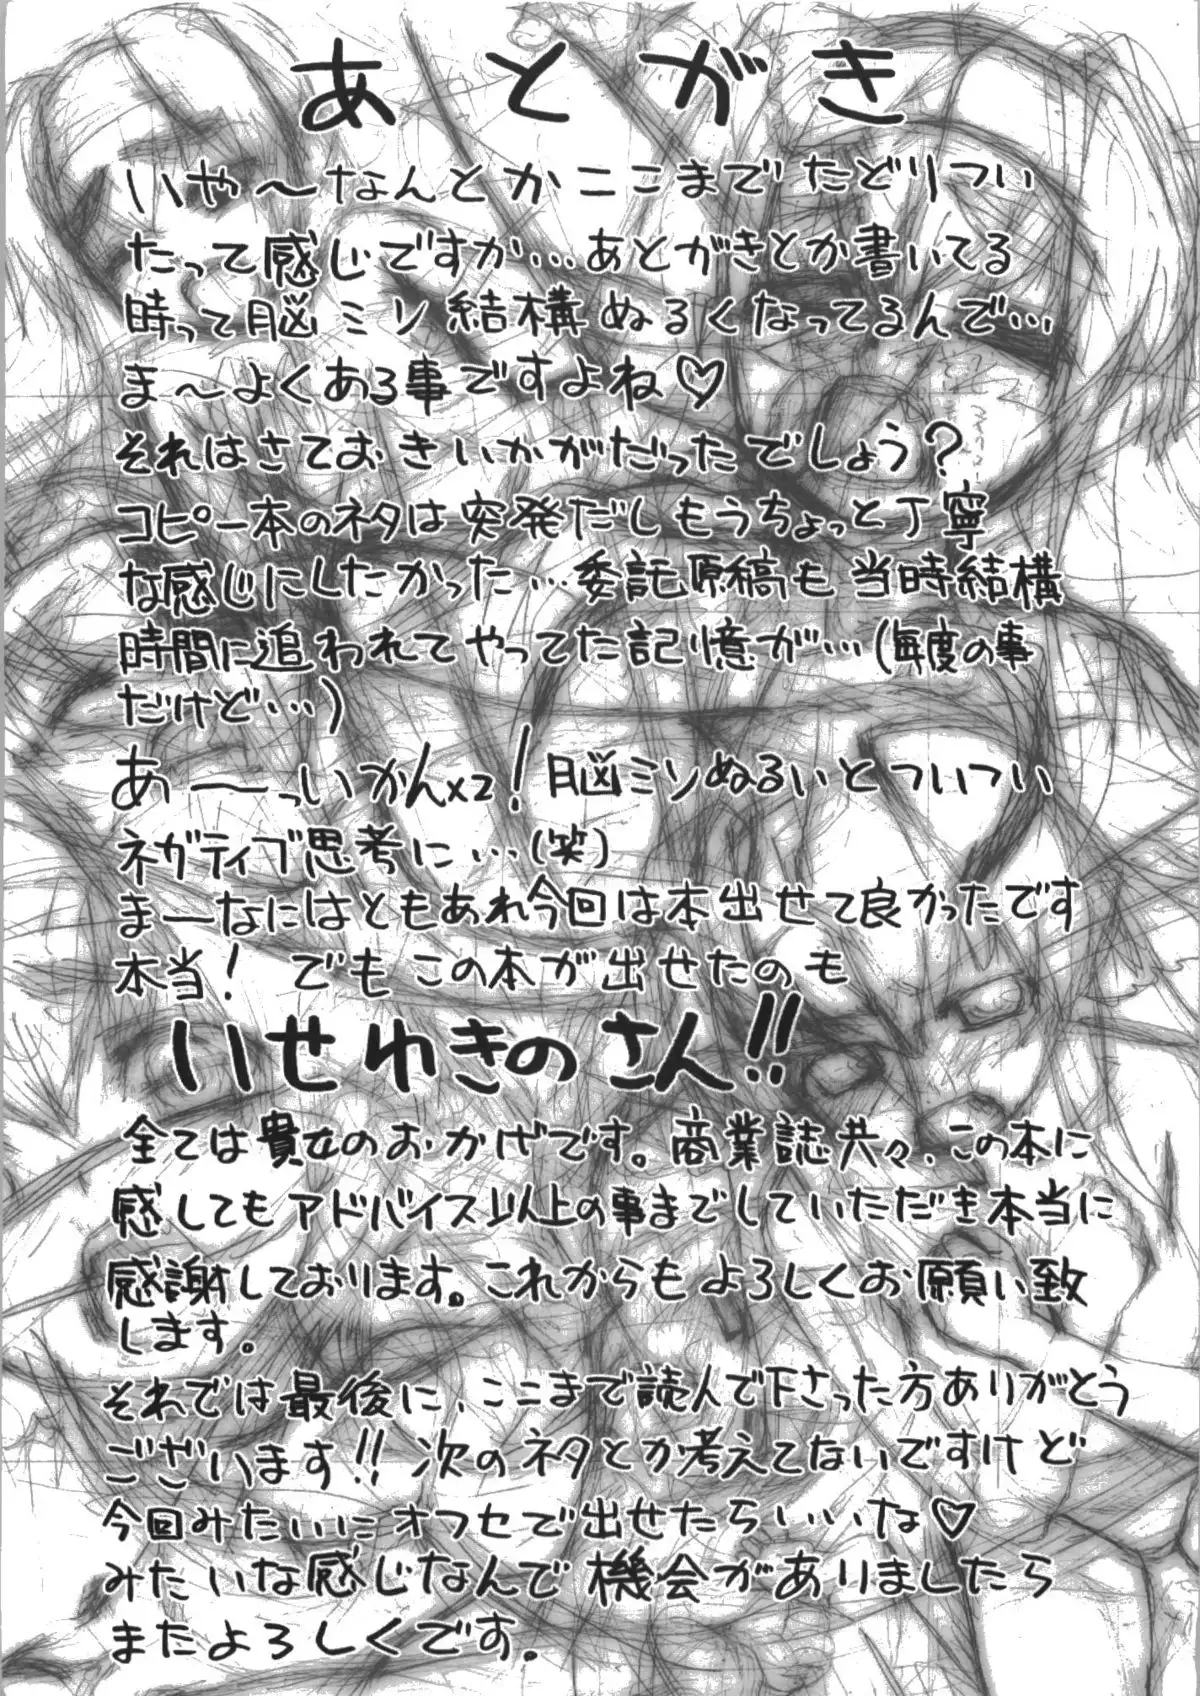 あとがき
いや〜なんとかここまでたどりつい
たって感じですか…あとがきとか書いてる
時って脳ミソ結構ぬるくなってるんで…
ま〜よくある事ですよね♡
それはさておきいかがだったでしょう?
コピー本のネタは突発だしもうちょっと丁寧
な感じにしたかった…委託原稿も当時結構
時間に追われてやってた記憶が…(毎度の事
だけど…)
あーっいかん×2!脳ミソぬるいとついつい
ネガティブ思考に…(笑)
まーなにはともあれ今回は本出せて良かったです
本当! でもこの本が出せたのも
いせわきのさん!!
全ては貴女のおかげです。商業誌共々、この本に
感してもアドバイス以上の事までしていただき本当に
感謝しております。これからもよろしくお願い致
します。
それでは最後に、ここまで読んで下さった方ありがとう
ございます!!次のネタとか考えてないですけど
今回みたいにオフセで出せたらいいな♡
みたいな感じなんで機会がありましたら
またよろしくです。